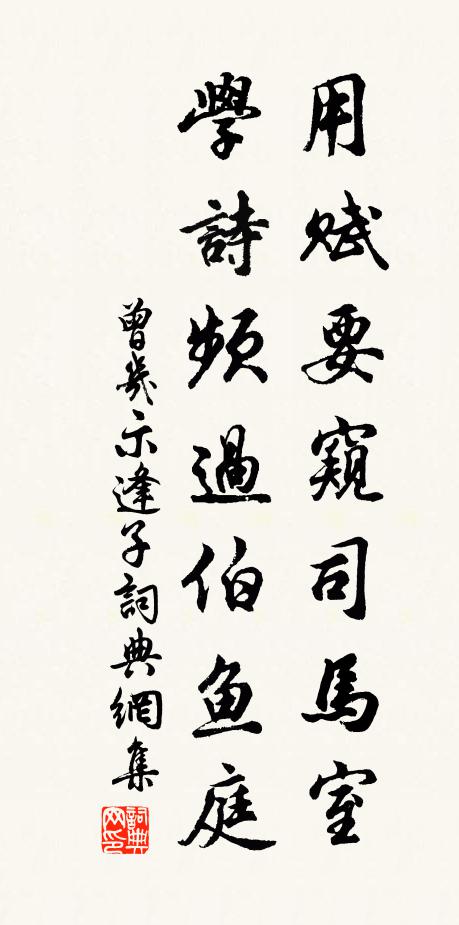 用賦要窺司馬室
學詩頻過伯魚庭
曾幾示逢子詞典網集
詞典網印